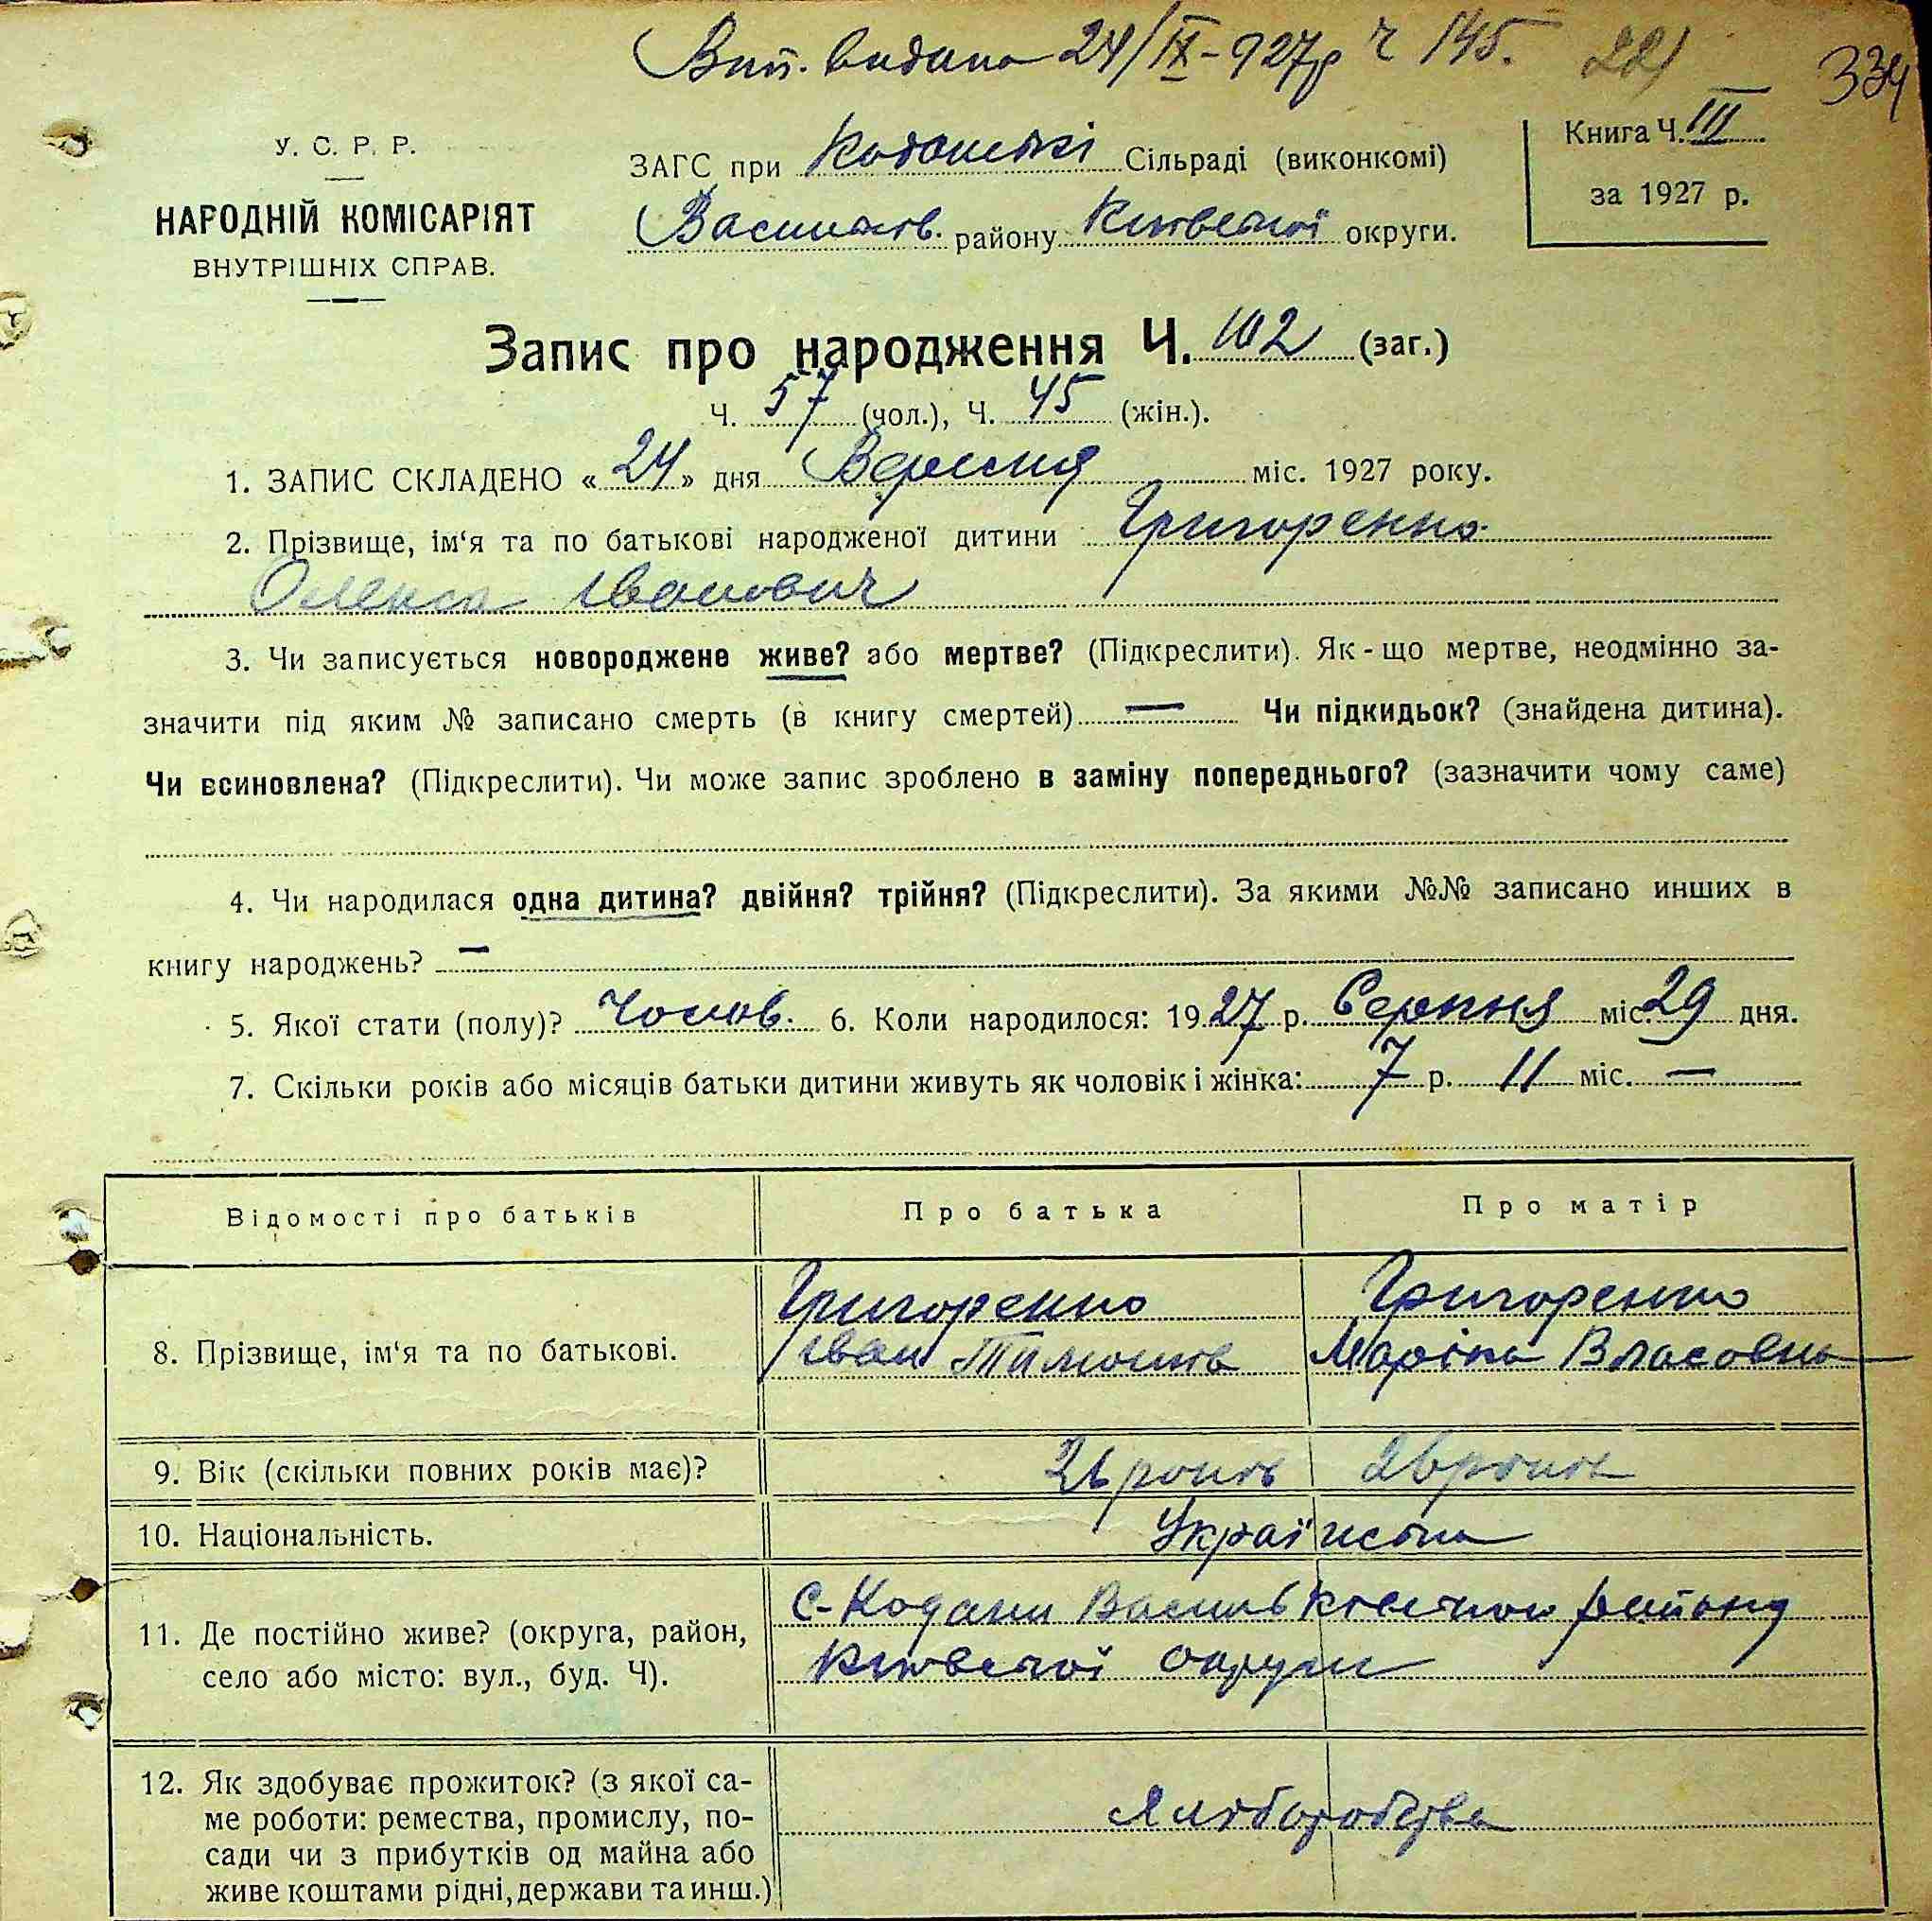 Вип. видана 24/IX-927р Ч 145. 221 334
У. С. Р. Р.
НАРОДНІЙ КОМІСАРІЯТ
ВНУТРІШНІХ СПРАВ.
ЗАГС при Кодацькі Сільраді (виконкомі)
Васильків. району Київської округи.
Книга Ч. III
за 1927 р.
Запис про народження Ч. 102 (заг.)
Ч. 57 (чол.), Ч. 45 (жін.).
1. ЗАПИС СКЛАДЕНО « 24 » дня Вересня міс. 1927 року.
2. Прізвище, ім‘я та по батькові народженої дитини Григоренко
Олекса Іванович
3. Чи записується новороджене живе? або мертве? (Підкреслити). Як-що мертве, неодмінно за-
значити під яким № записано смерть (в книгу смертей) — Чи підкидьок? (знайдена дитина).
Чи всиновлена? (Підкреслити). Чи може запис зроблено в заміну попереднього? (зазначити чому саме)
4. Чи народилася одна дитина? двійня? трійня? (Підкреслити). За якими №№ записано инших в
книгу народжень? —
5. Якої стати (полу)? Чолов. 6. Коли народилося: 1927 р. Серпня міс. 29 дня.
7. Скільки років або місяців батьки дитини живуть як чоловік і жінка: 7 р. 11 міс. —
Відомості про батьків Про батька Про матір
8. Прізвище, ім‘я та по батькові.
Григоренко
Іван Тимошів
Григоренко
Маріна Власовна
9. Вік (скільки повних років має)? 26 років 26 років
10. Національність. Українська
11. Де постійно живе? (округа, район,
село або місто: вул., буд. Ч).
с-Кодаки Васильківської району
Київської округи
12. Як здобуває прожиток? (з якої са-
ме роботи: ремества, промислу, по-
сади чи з прибутків од майна або
живе коштами рідні, держави та инш.)
Хліборобства